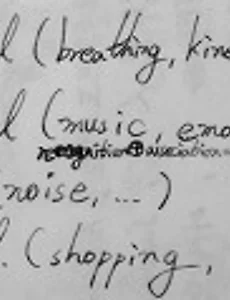 l (breathing, kind
l (music, emo
recognition⊕association
(noise, ...)
. (shopping,